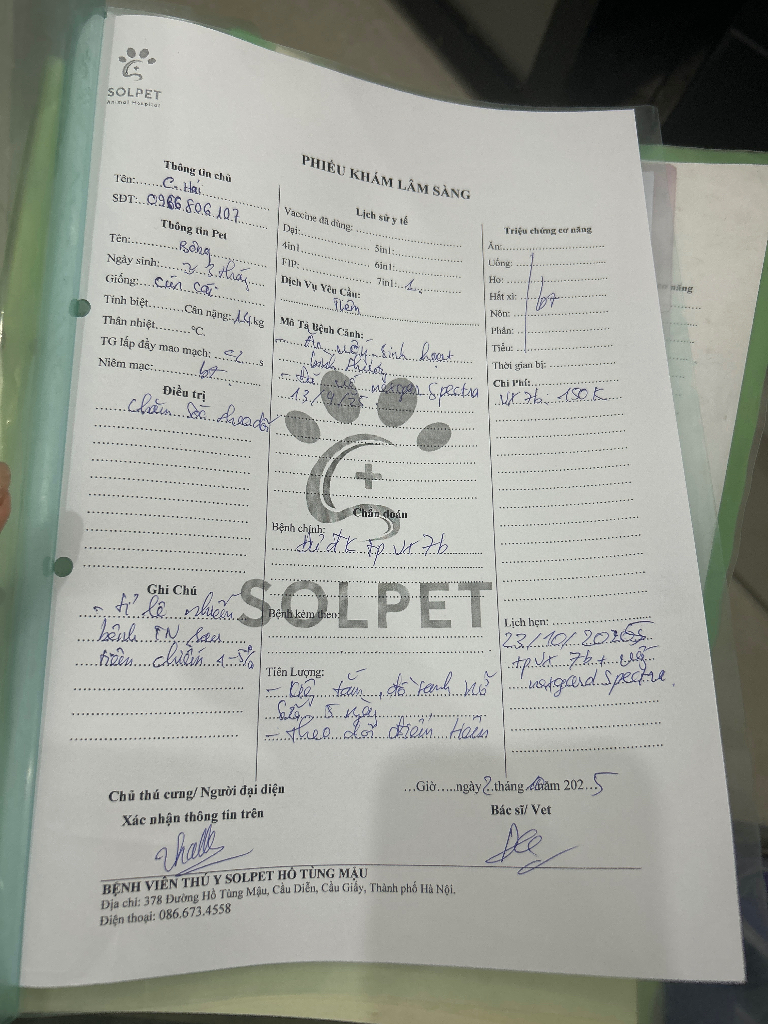 SOLPET
Animal Hospital
PHIẾU KHÁM LÂM SÀNG
Thông tin chủ
Tên: C. Hải
SĐT: 0966.806.107
Thông tin Pet
Tên: Bông
Ngày sinh: 3 tháng
Giống:
Tính biệt Cân nặng: 1,4 kg
Thân nhiệt °C.
TG lấp đầy mao mạch: <2 s
Niêm mạc: bt
Điều trị
Chăm sóc theo dõi
Ghi Chú
- tỉ lệ nhiễm
bệnh TN sau
tiêm chiếm 4-5%
Lịch sử y tế
Vaccine đã dùng:
Dại: 5in1
4in1 6in1
FIP: 7in1: 1
Dịch Vụ Yêu Cầu:
Tiêm
Mô Tả Bệnh Cảnh:
- Ăn uống sinh hoạt
bình thường
- Đã uống nexgard Spectra
13/9/25
Chẩn đoán
Bệnh chính:
Đủ đk tp vx 7b
SOLPET
Bệnh kèm theo:
Tiên Lượng:
- Kiêng tắm, đồ tanh
5 ngày
- Theo dõi điểm tiêm
Triệu chứng cơ năng
Ăn:
Uống:
Ho:
Hắt xì: bt
Nôn:
Phân:
Tiểu:
Thời gian bị:
Chi Phí:
vx 7b 150k
Lịch hẹn:
23/10/2025
tp vx 7b + uống
nexgard Spectra.
Chủ thú cưng/ Người đại diện
Xác nhận thông tin trên
...Giờ.....ngày 2 tháng 10 năm 2025
Bác sĩ/ Vet
BỆNH VIỆN THÚ Y SOLPET HỒ TÙNG MẬU
Địa chỉ: 378 Đường Hồ Tùng Mậu, Cầu Diễn, Cầu Giấy, Thành phố Hà Nội.
Điện thoại: 086.673.4558